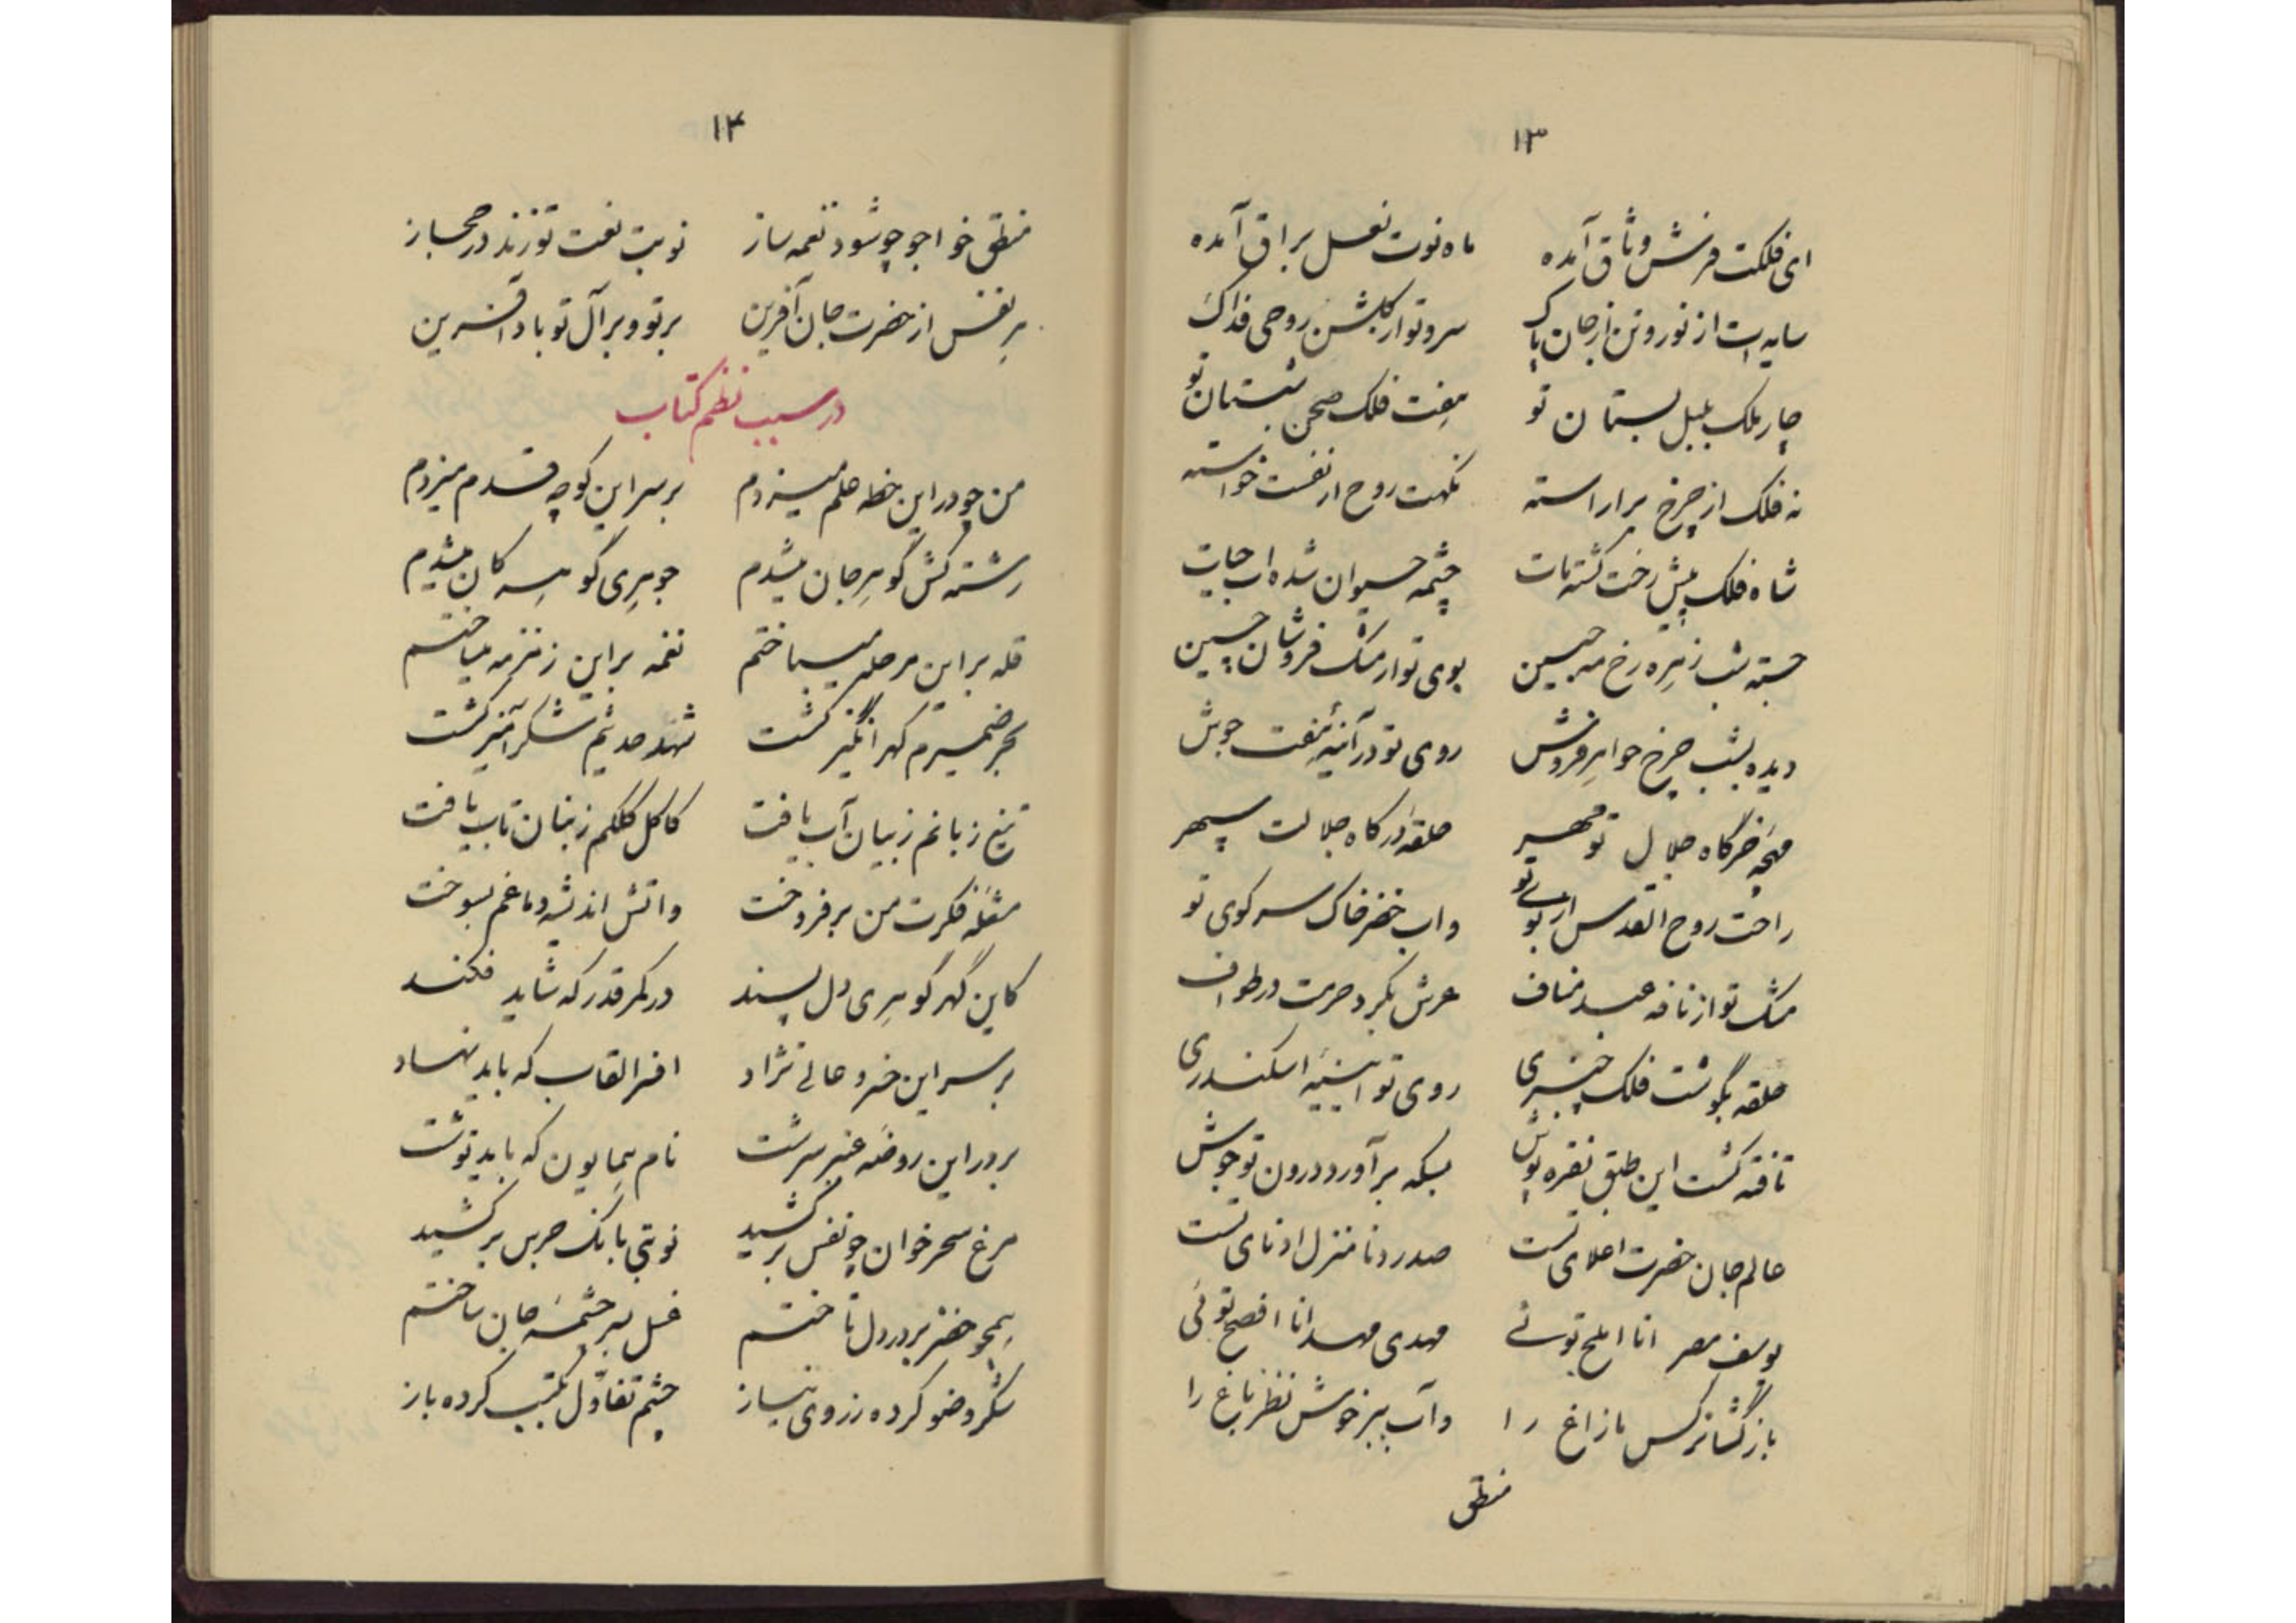 ۱۳
ای فلکت فرش وثاق آمده ماه نوت نعل براق آمده
سایه‌ات از نور و تن از جان پاک سرو تو از گلشن روحی فداک
چار ملک بلبل بستان تو هفت فلک صحن شبستان تو
نه فلک از چرخ براراسته نکهت روح از نفست خواسته
شاه فلک پیش رخت گشته مات چشمه حیوان شده اب حیات
جسته شب زهره رخ مه جبین بوی تو از مشک فروشان چین
دیده بشب چرخ جواهر فروش روی تو در آئینه هفت جوش
مهچه خرگاه جلال تو مهر حلقه درگاه جلالت سپهر
راحت روح القدس از بوی تو واب خضر خاک سر کوی تو
مشک تو از نافه عبد مناف عرش بگرد حرمت در طواف
حلقه بگوشت فلک چنبری روی تو ایینه اسکندری
تافته گشت این طبق نقره پوش بسکه برآورد درون تو جوش
عالم جان حضرت اعلای تست صدر دنا منزل ادنای تست
یوسف مصر انا املح توئی مهدی مهد انا افصح توئی
باز گشا نرگس مازاغ را وآب ببر خوش نظر باغ را
منطق
۱۴
منطق خواجو چو شود نغمه ساز نوبت نعت تو زند در حجاز
هر نفس از حضرت جان آفرین بر تو و بر آل تو باد آفرین
در سبب نظم کتاب
من چو در این خطه علم میزدم بر سر این کوچه قدم میزدم
رشته کش گوهر جان میشدم جوهری گوهر کان میشدم
قله بر این مرحله میساختم نغمه بر این زمزمه میساختم
بحر ضمیرم گهر انگیز گشت شهد حدیثم شکرآمیز گشت
تیغ زبانم ز بیان آب یافت کاکل کلکم ز بنان تاب یافت
مشعله فکرت من برفروخت واتش اندیشه دماغم بسوخت
کاین گهر گوهری دل پسند در کمر قدر که شاید فکند
بر سر این خسرو عالی نژاد افسر القاب که باید نهاد
بر در این روضه عنبر سرشت نام همایون که باید نوشت
مرغ سحر خوان چو نفس برکشید نوبتی بانگ جرس برکشید
همچو خضر بر در دل تاختم غسل بسر چشمه جان ساختم
شکر وضو کرده ز روی نیاز چشم تفاول بکتب کرده باز